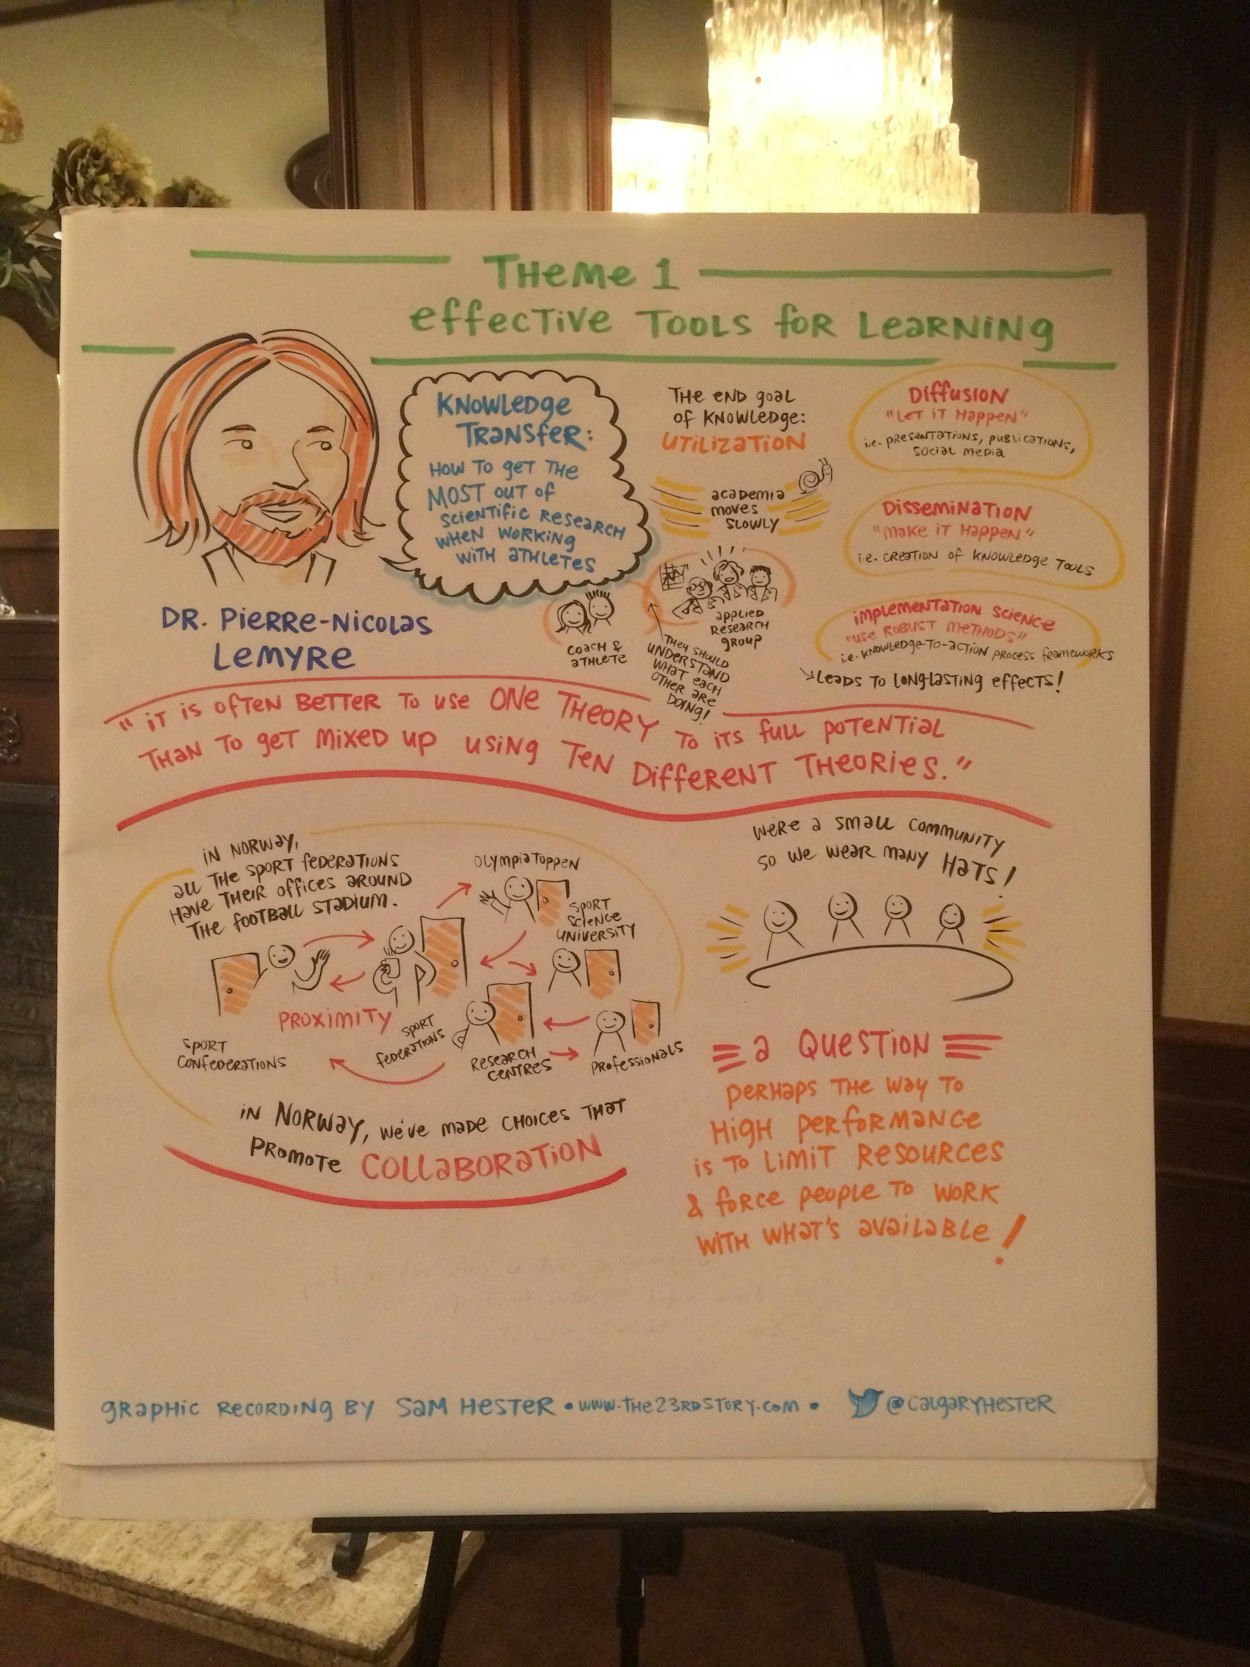 THEME 1
EFFECTIVE TOOLS FOR LEARNING
KNOWLEDGE
TRANSFER:
HOW TO GET THE
MOST OUT OF
SCIENTIFIC RESEARCH
WHEN WORKING
WITH ATHLETES
DR. PIERRE-NICOLAS
LEMYRE
THE END GOAL
OF KNOWLEDGE:
UTILIZATION
ACADEMIA
MOVES
SLOWLY
COACH &
ATHLETE
APPLIED
RESEARCH
GROUP
THEY SHOULD
UNDERSTAND
WHAT EACH
OTHER ARE
DOING!
DIFFUSION
"LET IT HAPPEN"
i.e. PRESENTATIONS, PUBLICATIONS,
SOCIAL MEDIA
DISSEMINATION
"MAKE IT HAPPEN"
i.e. CREATION OF KNOWLEDGE TOOLS
IMPLEMENTATION SCIENCE
"USE ROBUST METHODS"
i.e. KNOWLEDGE-TO-ACTION PROCESS FRAMEWORKS
LEADS TO LONGLASTING EFFECTS!
"IT IS OFTEN BETTER TO USE ONE THEORY TO ITS FULL POTENTIAL
THAN TO GET MIXED UP USING TEN DIFFERENT THEORIES."
IN NORWAY,
ALL THE SPORT FEDERATIONS
HAVE THEIR OFFICES AROUND
THE FOOTBALL STADIUM.
OLYMPIATOPPEN
SPORT
SCIENCE
UNIVERSITY
PROXIMITY
SPORT
CONFEDERATIONS
SPORT
FEDERATIONS
RESEARCH
CENTRES
PROFESSIONALS
IN NORWAY, WE'VE MADE CHOICES THAT
PROMOTE COLLABORATION
WE'RE A SMALL COMMUNITY
SO WE WEAR MANY HATS!
A QUESTION
PERHAPS THE WAY TO
HIGH PERFORMANCE
IS TO LIMIT RESOURCES
& FORCE PEOPLE TO WORK
WITH WHAT'S AVAILABLE!
GRAPHIC RECORDING BY SAM HESTER • WWW.THE23RDSTORY.COM • @CALGARYHESTER